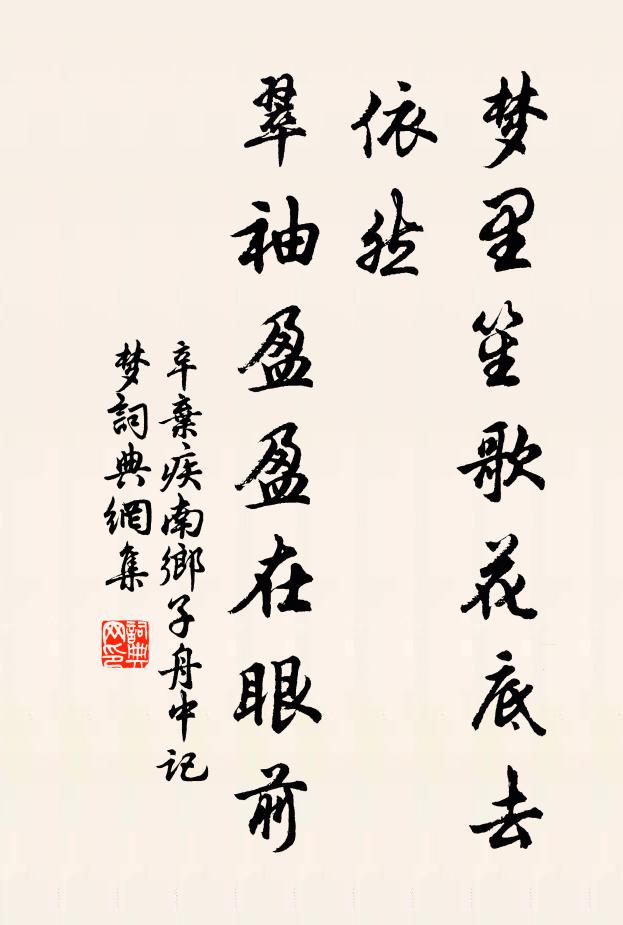 梦里笙歌花底去
依然
翠袖盈盈在眼前
辛棄疾南鄉子舟中记
梦詞典網集
詞典
网印